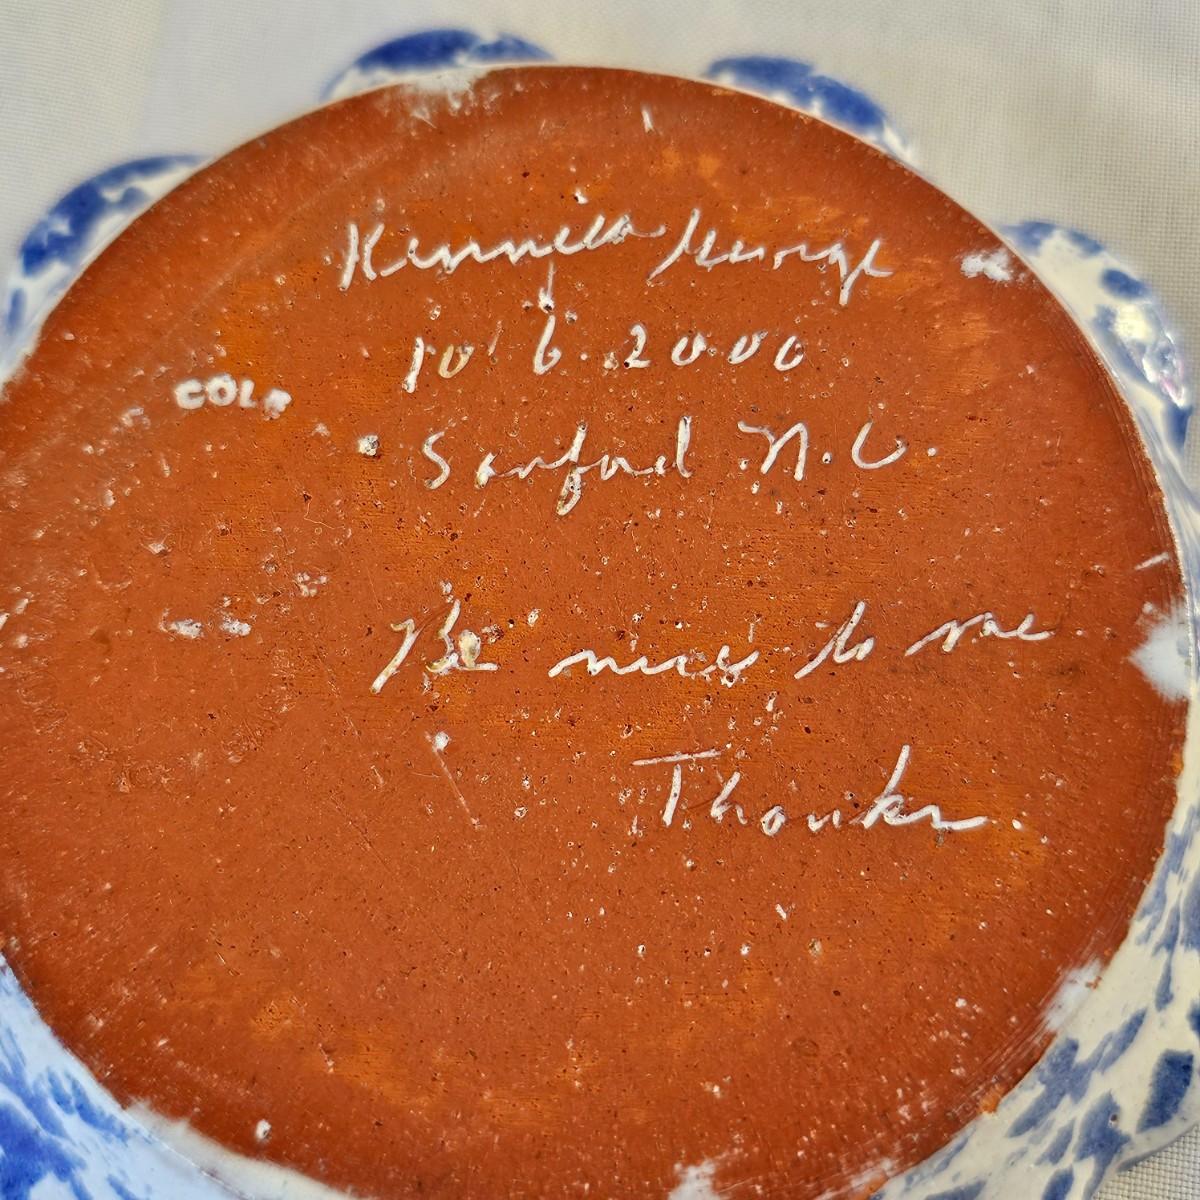 Kenneth George
10 6.2000
COLE
Sanford N.C.
Be nice to me
Thanks.